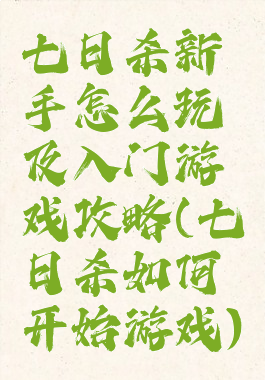 七日杀新
手怎么玩
及入门游
戏攻略(七
日杀如何
开始游戏)